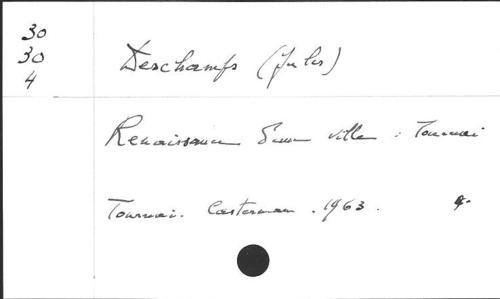 30
30
4
Deschamps (Jules)
Renaissance d'une ville : Tournai
Tournai. Casterman. 1963.